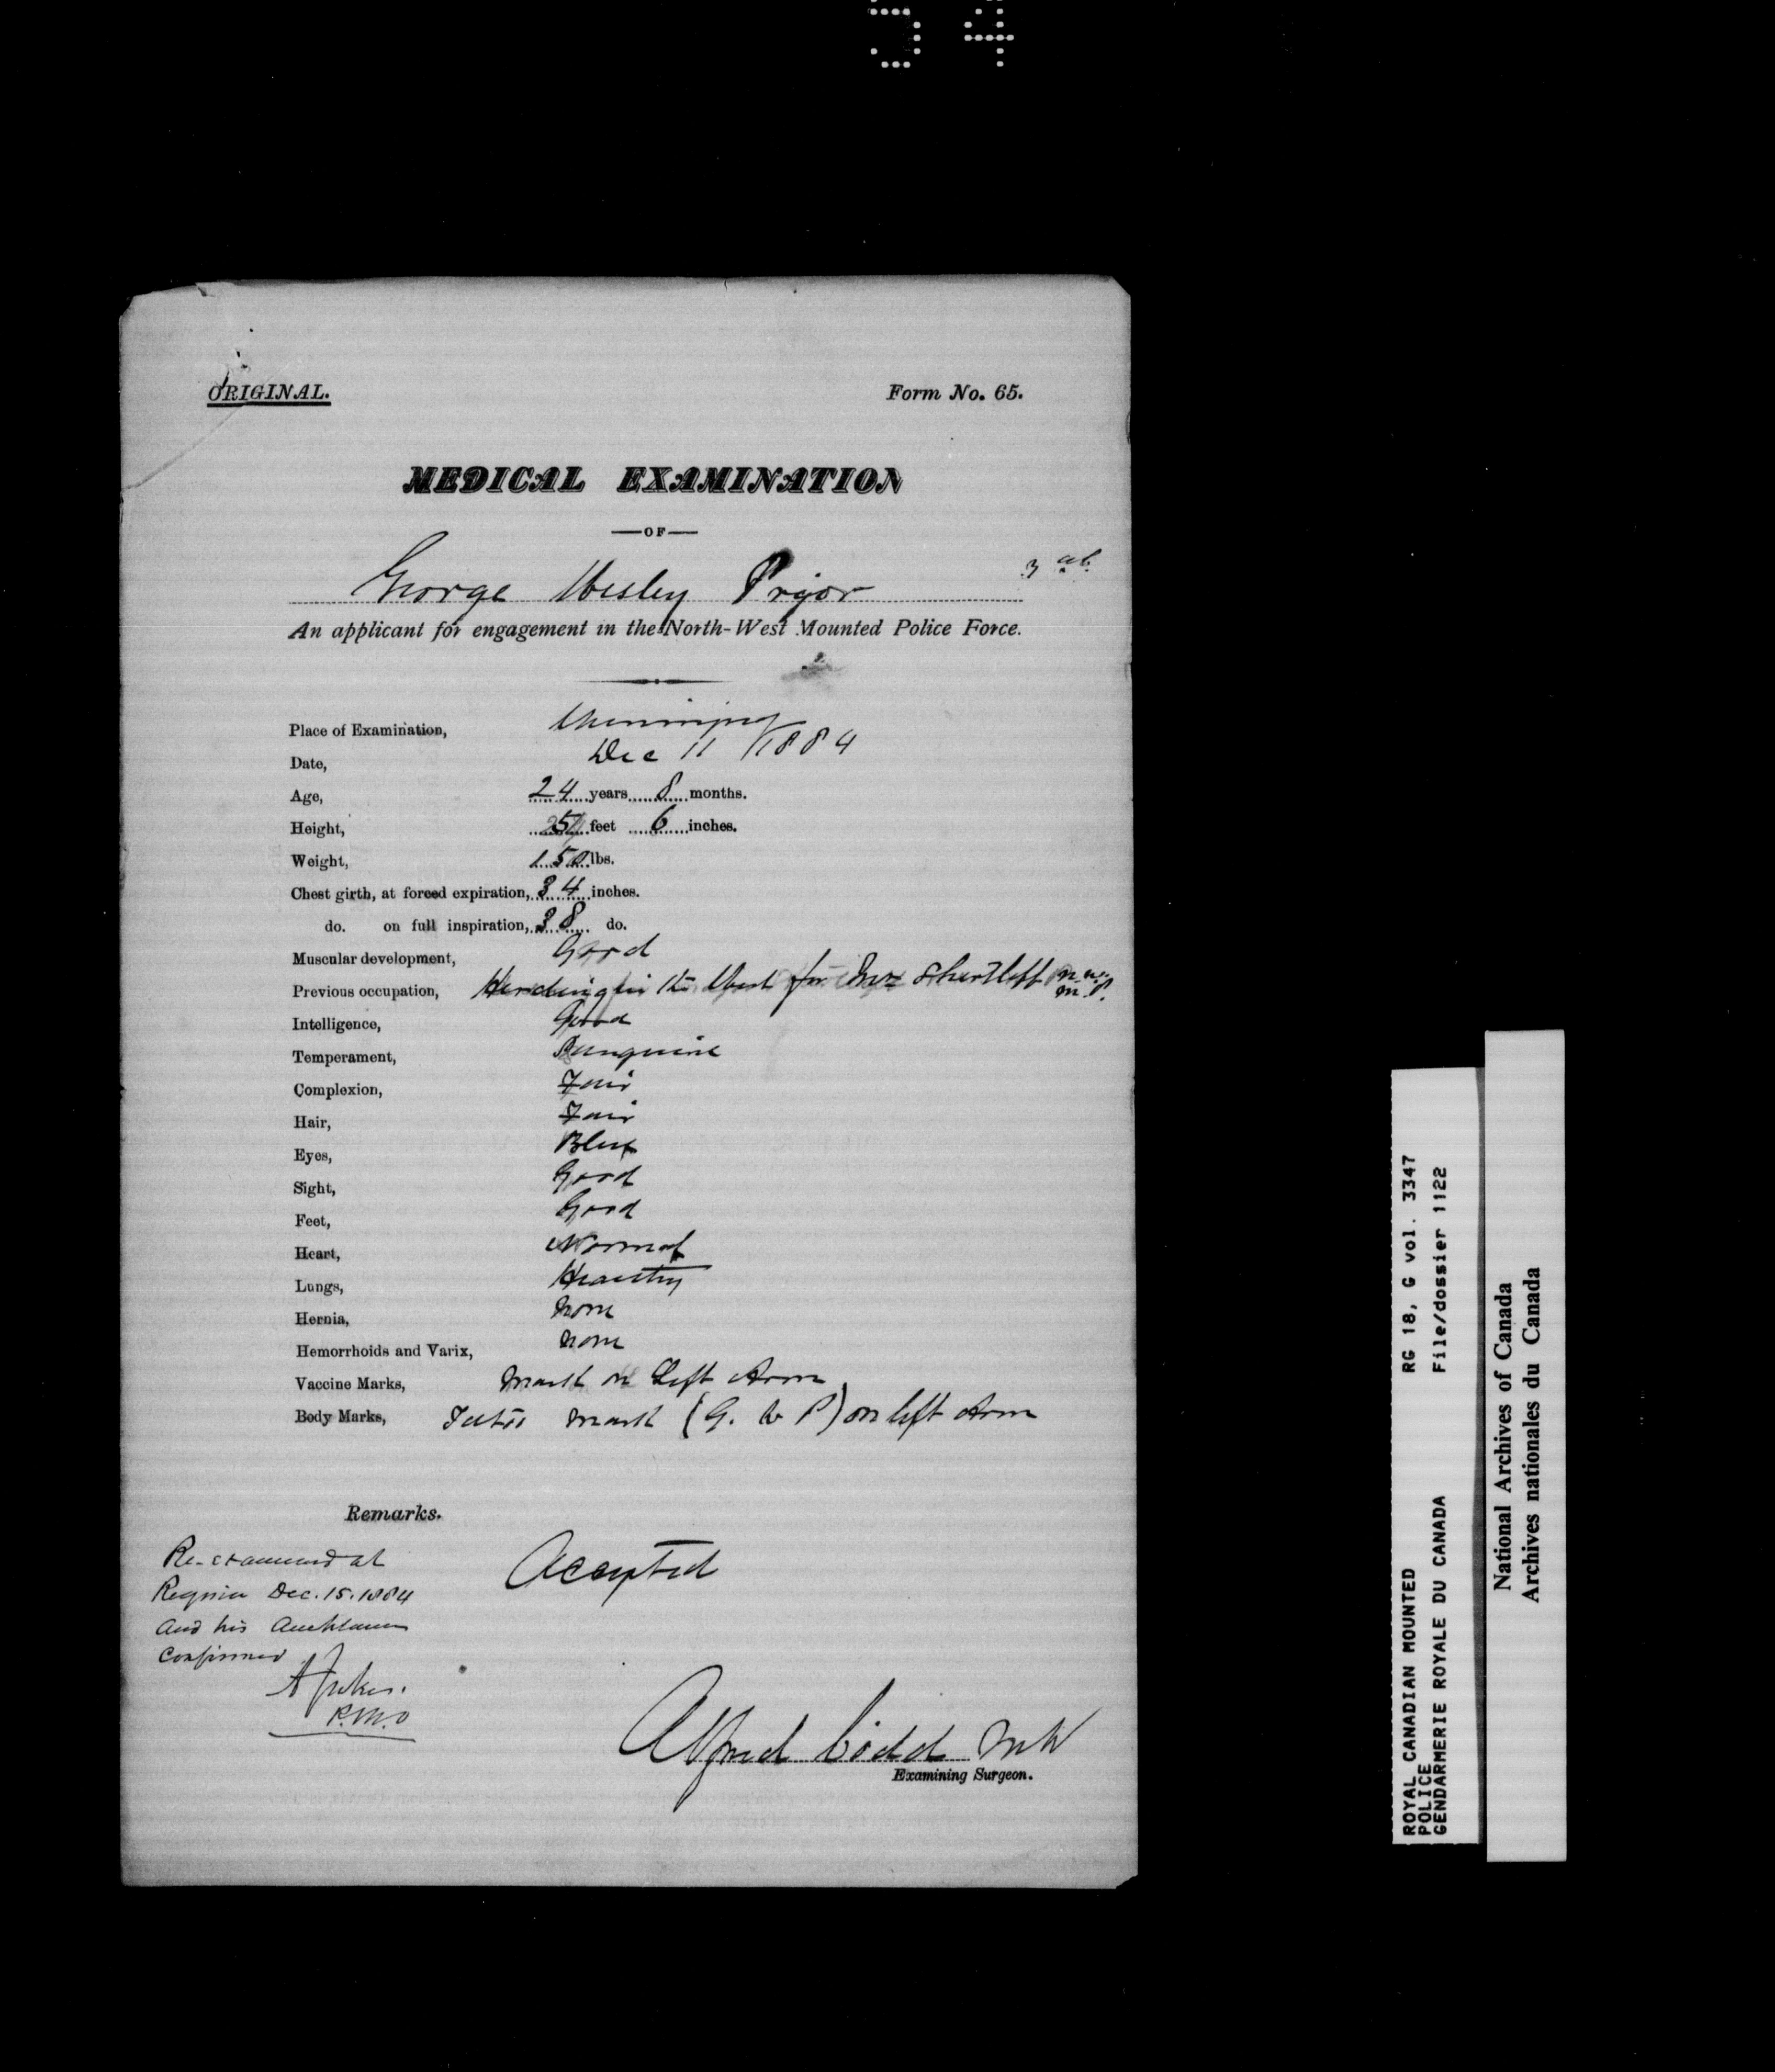 54
ORIGINAL.
Form No. 65.
MEDICAL EXAMINATION
—OF—
George Wesley Pryor
An applicant for engagement in the North-West Mounted Police Force.
Place of Examination, Winnipeg
Date, Dec 11 /1884
Age, 24 years 8 months.
Height, 5 feet 6 inches.
Weight, 150 lbs.
Chest girth, at forced expiration, 34 inches.
do. on full inspiration, 38 do.
Muscular development, Good
Previous occupation, Herding in the West for Shurtleff N.W.M.P.
Intelligence, Good
Temperament, Sanguine
Complexion, Fair
Hair, Fair
Eyes, Blue
Sight, Good
Feet, Good
Heart, Normal
Lungs, Healthy
Hernia, None
Hemorrhoids and Varix, None
Vaccine Marks, Mark on Left Arm
Body Marks, mark (G. W P) on left Arm
Remarks.
Re-examined at
Regina Dec. 15. 1884
and his
Confirmed
A Jukes.
Accepted
Alfred Codd
Examining Surgeon.
ROYAL CANADIAN MOUNTED RG 18, G vol. 3347
POLICE
GENDARMERIE ROYALE DU CANADA File/dossier 1122
National Archives of Canada
Archives nationales du Canada